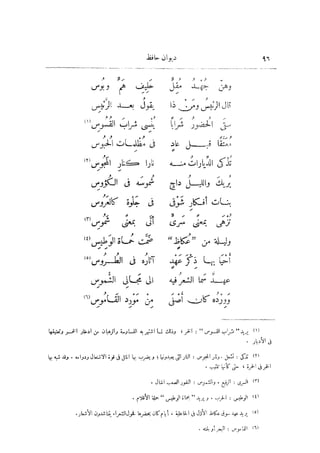 ٩٦ ديوان حافظ
وهن جُهْدُ مُقِلٍّ حَلِيفِ هَمٍّ وبُوسِ
قال الرئيسُ ومَنْ ذا يقولُ بعدَ الرئيسِ
سِنى الحضورُ شَرابًا يُنسِى شرابَ القُسُوسِ (١)
مُعَتَّقًا قبل عادٍ فى مُظْلِماتِ الحُبُوسِ
تُذْكى الدِّياراتُ منه نارًا كنارِ المجُوسِ (٢)
يُريكَ والليلُ داجٍ شُموسَه فى الكُؤوسِ
بناتُ أفكارِ شَوْقى فى جَلْوةٍ كالعَرُوسِ
تُزْهَى بمعنًى سَرِىٍّ أتى بمعنًى شَمُوسِ (٣)
وليلةٍ من "عُكاظٍ" ضَمَّتْ حُماةَ الوَطِيسِ (٤)
أحْيا بها ذِكرَ عَهْدٍ آثارُه فى الطُّرُوسِ (٥)
عهدٌ سما الشعرُ فيه الى مجَالِى الشُّمُوسِ
ووِرْدُه كان أصْفَى مِنْ مَوْرِدِ القَامُوسِ (٦)
(١) يريد "شراب القسوس" : الخمر؛ وذلك لما اشتهر به القساوسة والرهبان من ادخار الخمر وتعتيقها
فى الأديار .
(٢) تذكى : تشعل . ونار المجوس : النار التى يعبدونها؛ ويضرب بها المثل فى قوة الاشتعال ودوامه . وقد شبه بها
الخمر فى الحمرة ؛ حتى كأنها تلتهب .
(٣) السرى : الرفيع . والشموس : النفور الصعب المنال .
(٤) الوطيس : الحرب . ويريد "بحماة الوطيس" حملة الأقلام .
(٥) يريد عهد سوق عكاظ الأول فى الجاهلية ، أيام كان يحضرها فحول الشعراء يتناشدون الأشعار .
(٦) القاموس : البحر أو بلجته .